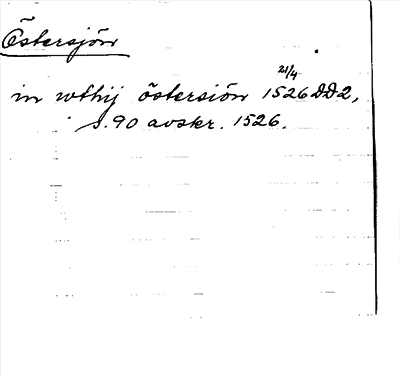 Östersjön
in wthij östersiön 21/4 1526 DD2,
s. 90 avskr. 1526.